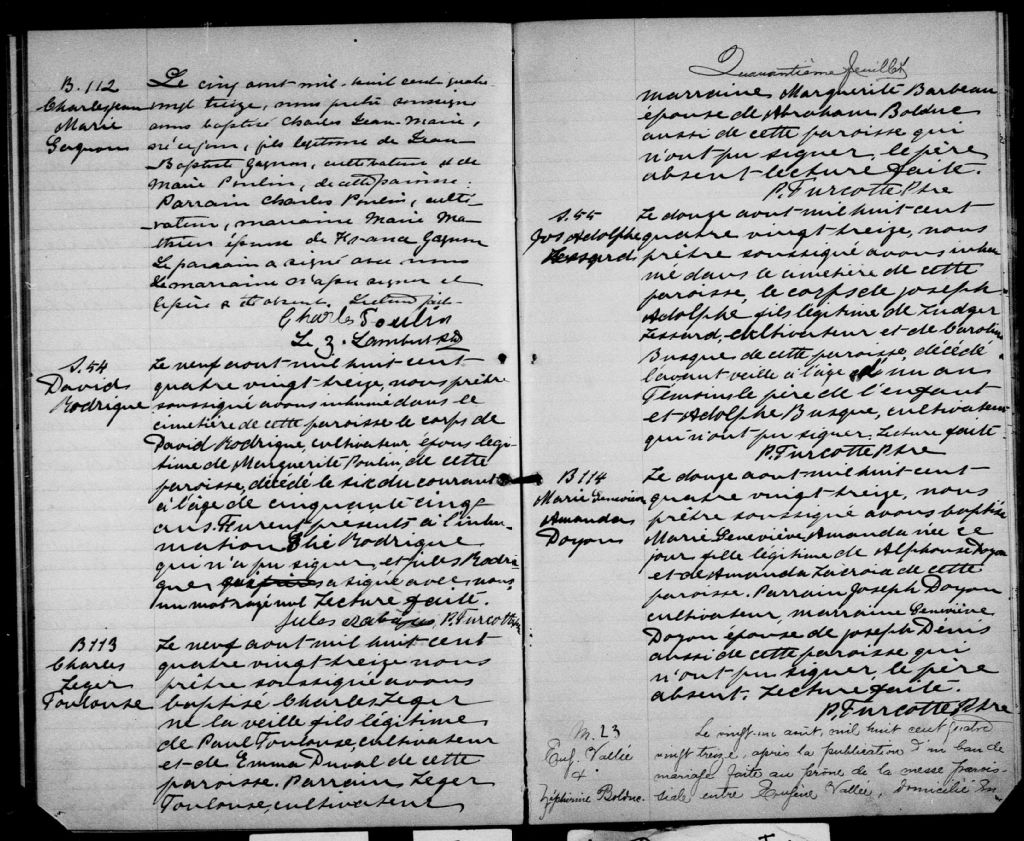 B. 112
Charles Jean
Marie
Gagnon
Le cinq aout mil-huit cent quatre
vingt treize, nous prêtre soussigné
avons baptisé Charles Jean-Marie,
né ce jour, fils légitime de Jean
Baptiste Gagnon, cultivateur & de
Marie Poulin, de cette paroisse.
Parrain Charles Poulin, culti-
vateur, marraine Marie Ma-
thieu épouse de Gagnon
Le parrain a signé avec nous
La marraine n'a pu signer et
le père a été absent. Lecture faite
Charles Poulin
Lambert
S. 54
David
Rodrigue
Le neuf aout mil huit cent
quatre vingt treize, nous prêtre
soussigné avons inhumé dans le
cimetière de cette paroisse le corps de
David Rodrigue, cultivateur époux légi-
time de Marguerite Poulin, de cette
paroisse, décédé le six du courant
à l'âge de cinquante cinq
ans. Furent présents à l'inhu-
mation Rodrigue
qui n'a pu signer, et Jules Rodri-
gue a signé avec nous
un mot rayé nul Lecture faite.
Jules P. Turcotte Ptre
B 113
Charles
Leger
Toulouse
Le neuf aout mil huit cent
quatre vingt treize nous
prêtre soussigné avons
baptisé Charles Leger
né la veille fils légitime
de Paul Toulouse, cultivateur
et de Emma Duval de cette
paroisse. Parrain Leger
Toulouse, cultivateur
Quarantième feuillet
marraine Marguerite Barbeau
épouse de Abraham Bolduc
aussi de cette paroisse qui
n'ont pu signer, le père
absent lecture faite.
P. Turcotte Ptre
S. 55
Jos Adolphe
Lessard
Le douze aout mil huit cent
quatre vingt-treize, nous
prêtre soussigné avons inhu
mé dans le cimetière de cette
paroisse, le corps de Joseph
Adolphe fils légitime de Ludger
Lessard, cultivateur et de Caroline
Busque de cette paroisse, décédé
l'avant veille à l'âge d'un an
Temoins le père de l'enfant
et Adolphe Busque, cultivateur
qui n'ont pu signer. Lecture faite
P. Turcotte Ptre
B 114
Marie Geneviève
Amanda
Doyon
Le douze aout mil huit cent
quatre vingt treize, nous
prêtre soussigné avons baptisé
Marie Geneviève Amanda née ce
jour fille légitime de Alphonse Doyon
et de Amanda Lacroix de cette
paroisse. Parrain Joseph Doyon
cultivateur, marraine Geneviève
Doyon épouse de Joseph Denis
aussi de cette paroisse qui
n'ont pu signer, le père
absent. Lecture faite.
P. Turcotte Ptre
M. 23
Eug. Vallée
+
Zéphirine Bolduc.
Le vingt-un août, mil huit cent quatre
vingt treize, après la publication d'un ban de
mariage faite au prône de la messe parois-
siale entre Eugène Vallée, domicilié